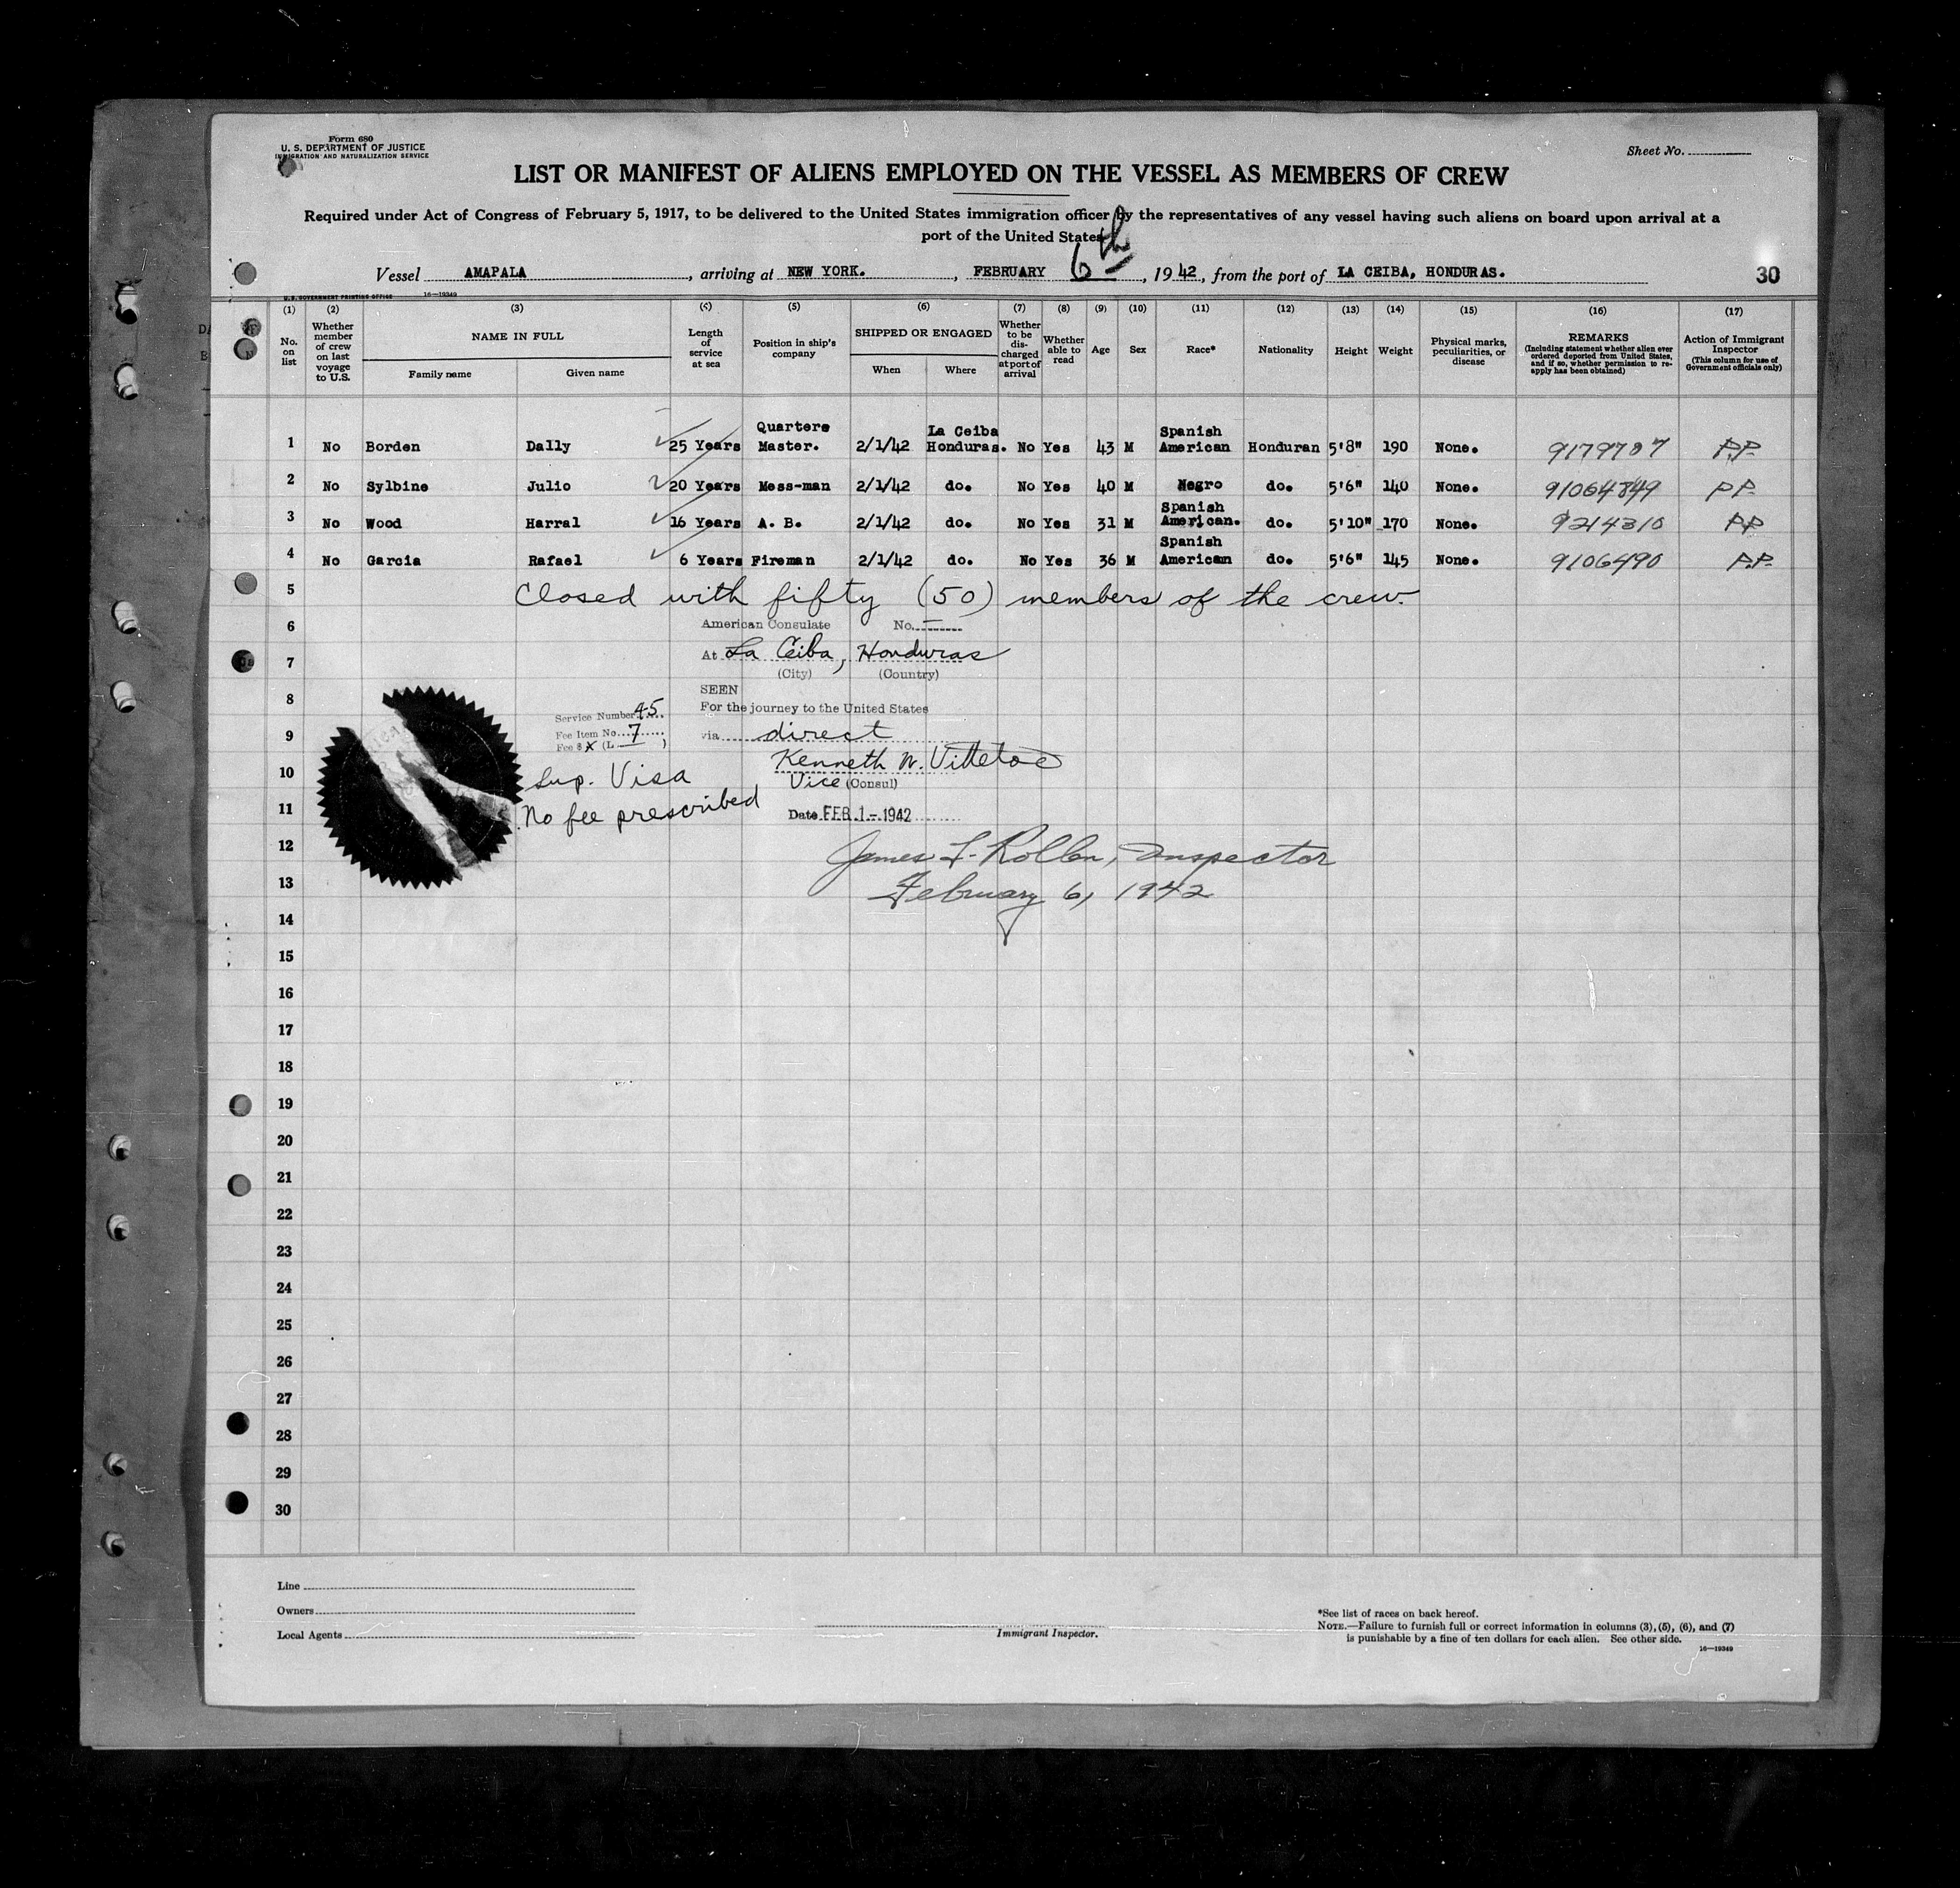 Form 680
U. S. DEPARTMENT OF JUSTICE
IMMIGRATION AND NATURALIZATION SERVICE
Sheet No.
LIST OR MANIFEST OF ALIENS EMPLOYED ON THE VESSEL AS MEMBERS OF CREW
Required under Act of Congress of February 5, 1917, to be delivered to the United States immigration officer by the representatives of any vessel having such aliens on board upon arrival at a
port of the United States
Vessel AMAPALA, arriving at NEW YORK., FEBRUARY 6th, 1942, from the port of LA CEIBA, HONDURAS.
30
U. S. GOVERNMENT PRINTING OFFICE 16—19349
(1) (2) (3) (4) (5) (6) (7) (8) (9) (10) (11) (12) (13) (14) (15) (16) (17)
No. on list
Whether member of crew on last voyage to U.S.
NAME IN FULL
Family name
Given name
Length of service at sea
Position in ship's company
SHIPPED OR ENGAGED
When
Where
Whether to be discharged at port of arrival
Whether able to read
Age
Sex
Race*
Nationality
Height
Weight
Physical marks, peculiarities, or disease
REMARKS
(Including statement whether alien ever ordered deported from United States, and if so, whether permission to re-apply has been obtained)
Action of Immigrant Inspector
(This column for use of Government officials only)
1 No Borden Dally 25 Years Quarters Master. 2/1/42 La Ceiba Honduras. No Yes 43 M Spanish American Honduran 5'8" 190 None. 9179787 P.P.
2 No Sylbine Julio 20 Years Mess-man 2/1/42 do. No Yes 40 M Negro do. 5'6" 140 None. 91064849 P.P.
3 No Wood Harral 16 Years A. B. 2/1/42 do. No Yes 31 M Spanish American. do. 5'10" 170 None. 9214310 PP
4 No Garcia Rafael 6 Years Fireman 2/1/42 do. No Yes 36 M Spanish American do. 5'6" 145 None. 9106490 P.P.
5 Closed with fifty (50) members of the crew.
6 American Consulate No.
7 At La Ceiba, Honduras
(City) (Country)
8 SEEN
For the journey to the United States
Service Number 45
9 via direct
Fee Item No. 7
Fee $ X (L )
10 Sup. Visa
Kenneth W. Vittetoe
Vice (Consul)
11 No fee prescribed
Date FEB 1 - 1942
12 James F. Rollen, Inspector
13 February 6, 1942
14
15
16
17
18
19
20
21
22
23
24
25
26
27
28
29
30
Line
Owners
Local Agents
Immigrant Inspector.
*See list of races on back hereof.
NOTE.—Failure to furnish full or correct information in columns (3), (5), (6), and (7)
is punishable by a fine of ten dollars for each alien. See other side.
16—19349